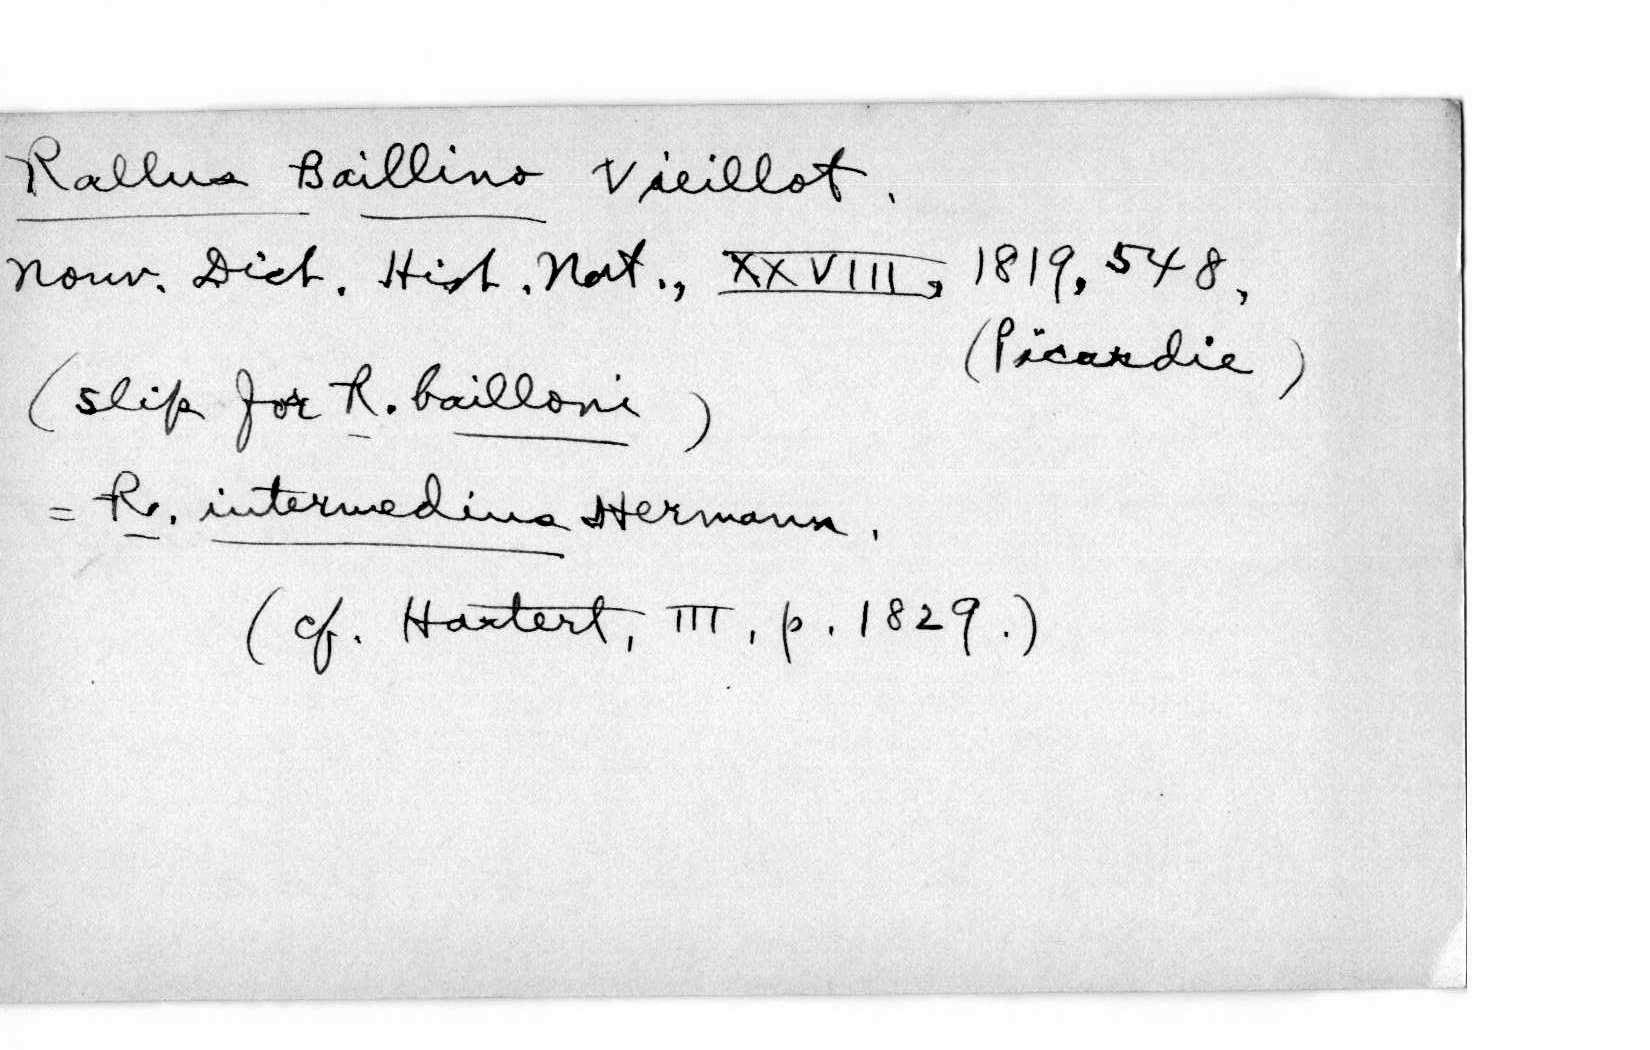 Rallus Baillino Vieillot.
Nouv. Dict. Hist. Nat., XXVIII, 1819, 548,
(Picardie)
(slip for R. bailloni)
= R. intermedius Hermann.
(cf. Hartert, III, p. 1829.)